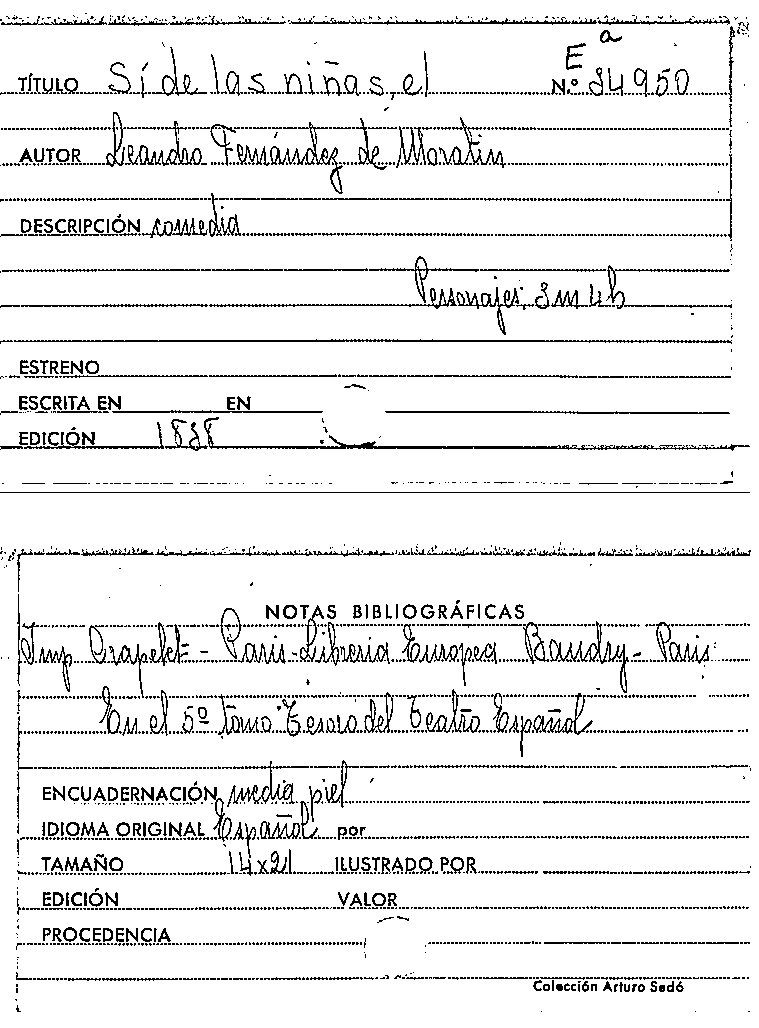 E a
TÍTULO Sí de las niñas, el N.º 34950
AUTOR Leandro Fernández de Moratin
DESCRIPCIÓN comedia
Personajes: 3 m 4 h
ESTRENO
ESCRITA EN EN
EDICIÓN 1838
NOTAS BIBLIOGRÁFICAS
Imp Crapelet - Paris - Libreria Europea Baudry - Paris
En el 5º tomo Tesoro del Teatro Español
ENCUADERNACIÓN media piel
IDIOMA ORIGINAL Español por
TAMAÑO 14x21 ILUSTRADO POR
EDICIÓN VALOR
PROCEDENCIA
Colección Arturo Sedó